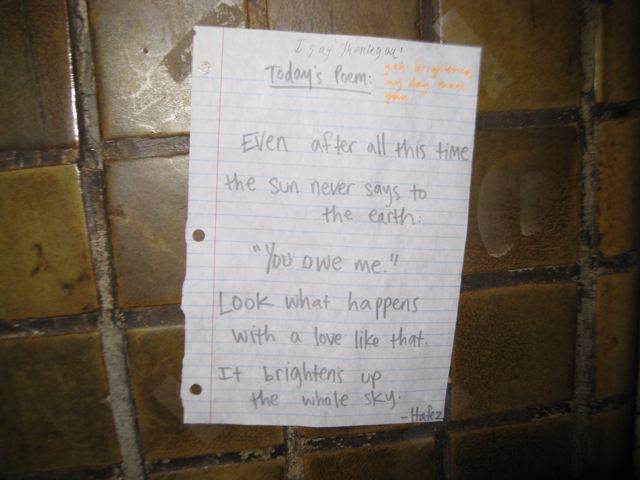 I say
Today's Poem:
my day. thank
you.
Even after all this time
the sun never says to
the earth:
"You owe me."
Look what happens
with a love like that.
It brightens up
the whole sky.
-Hafez